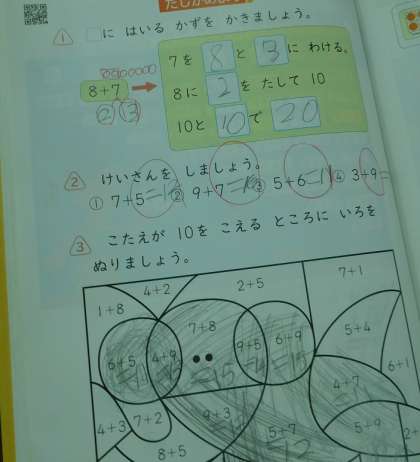 1 □に はいる かずを かきましょう。
8+7
2 3
7を 8 と 3 に わける。
8に 2 を たして 10
10と 10 で 20
2 けいさんを しましょう。
① 7+5=12 ② 9+7 ③ 5+6=11 ④ 3+9=
3 こたえが 10を こえる ところに いろを
ぬりましょう。
4+2 2+5 7+1
1+8
7+8 5+4
6+5 4+9 9+5 6+9
=15
4+7 6+1
4+3 7+2 9+3
5+7 5+9
8+5 12